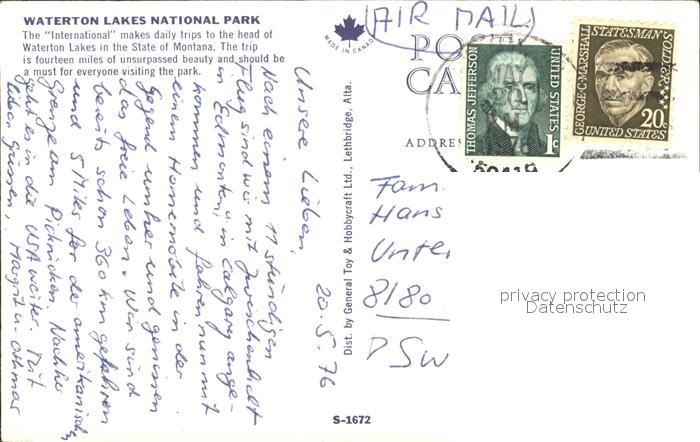 WATERTON LAKES NATIONAL PARK
The "International" makes daily trips to the head of
Waterton Lakes in the State of Montana. The trip
is fourteen miles of unsurpassed beauty and should be
a must for everyone visiting the park.
MADE IN CANADA
(AIR MAIL)
POS
CA
ADDRE
THOMAS JEFFERSON
UNITED STATES
1c
GEORGE·C·MARSHALL
STATESMAN
SOLDIER
20c
UNITED STATES
20419
20.5.76
Unsere Lieben,
Nach einem 11 stündigen
Flug sind wir mit Zwischenhalt
in Edmonton, in Calgary ange-
kommen und fahren nun mit
einem Homemobile in der
Gegend umher und geniessen
das freie Leben. Wir sind
bereits schon 360 km gefahren
und 5 Miles for der amerikanisch
Grenze am Picknicken. Nachher
geht es in die USA weiter. Mit
lieben Grüssen,
Margrit u. Othmar
Dist. by General Toy & Hobbycraft Ltd., Lethbridge, Alta.
Fam.
Hans
Unte
8180
PSW
privacy protection
Datenschutz
S-1672